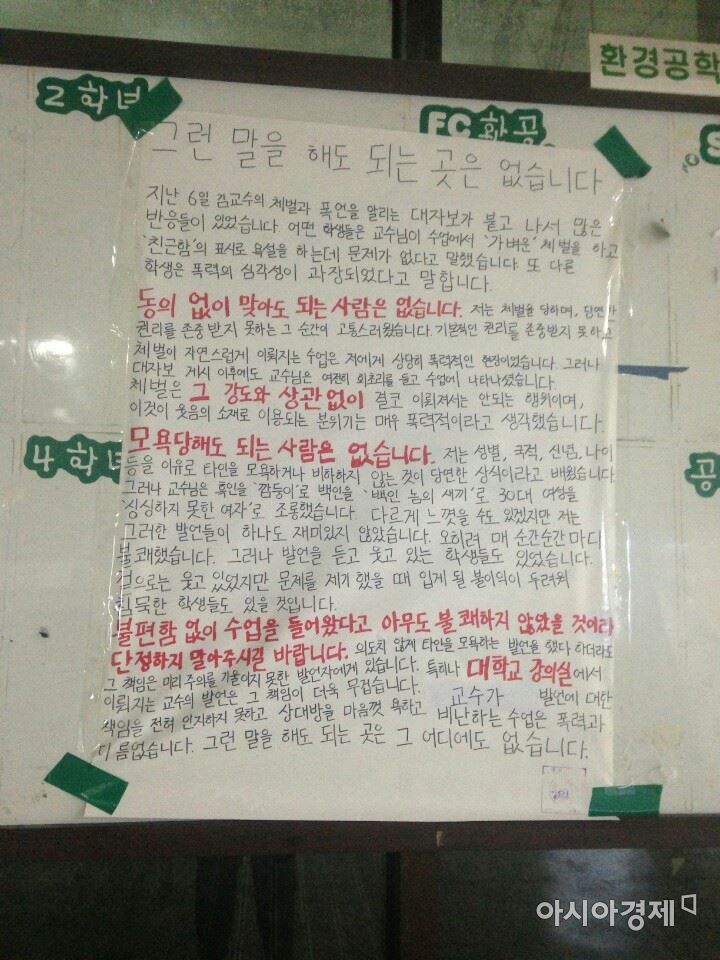 환경공학
2학년
FC화공
그런 말을 해도 되는 곳은 없습니다
지난 6일 김교수의 체벌과 폭언을 알리는 대자보가 붙고 나서 많은
반응들이 있었습니다. 어떤 학생들은 교수님이 수업에서 '가벼운' 체벌을 하고
'친근함'의 표시로 욕설을 하는데 문제가 없다고 말했습니다. 또 다른
학생은 폭력의 심각성이 과장되었다고 말합니다.
동의 없이 맞아도 되는 사람은 없습니다. 저는 체벌을 당하며, 당연한
권리를 존중 받지 못하는 그 순간이 고통스러웠습니다. 기본적인 권리를 존중받지 못하고
체벌이 자연스럽게 이뤄지는 수업은 저에게 상당히 폭력적인 현장이었습니다. 그러나
대자보 게시 이후에도 교수님은 여전히 회초리를 들고 수업에 나타나셨습니다.
체벌은 그 강도와 상관없이 결코 이뤄져서는 안되는 행위이며,
이것이 웃음의 소재로 이용되는 분위기는 매우 폭력적이라고 생각했습니다.
모욕당해도 되는 사람은 없습니다. 저는 성별, 국적, 신념, 나이
등을 이유로 타인을 모욕하거나 비하하지 않는 것이 당연한 상식이라고 배웠습니다
그러나 교수님은 흑인을 '깜둥이'로 백인을 '백인 놈의 새끼'로 30대 여성을
'싱싱하지 못한 여자'로 조롱했습니다. 다르게 느꼈을 수도 있겠지만 저는
그러한 발언들이 하나도 재미있지 않았습니다. 오히려 매 순간순간 마디
불쾌했습니다. 그러나 발언을 듣고 웃고 있는 학생들도 있었습니다.
겉으로는 웃고 있었지만 문제를 제기 했을 때 입게 될 불이익이 두려워
침묵한 학생들도 있을 것입니다.
불편함 없이 수업을 들어왔다고 아무도 불쾌하지 않았을 것이라
단정하지 말아주시길 바랍니다. 의도치 않게 타인을 모욕하는 발언을 했다 하더라도
그 책임은 미리 주의를 기울이지 못한 발언자에게 있습니다. 특히나 대학교 강의실에서
이뤄지는 교수의 발언은 그 책임이 더욱 무겁습니다. 교수가 발언에 대한
책임을 전혀 인지하지 못하고 상대방을 마음껏 욕하고 비난하는 수업은 폭력과
다름없습니다. 그런 말을 해도 되는 곳은 그 어디에도 없습니다.
4학년
공
아시아경제